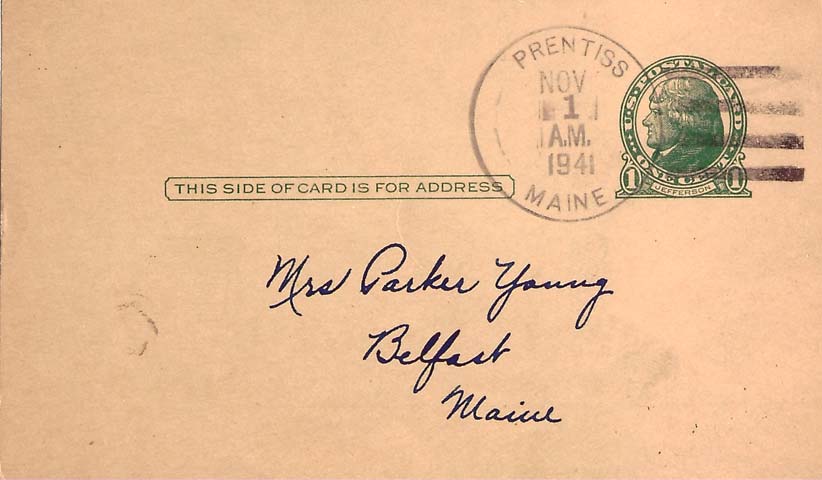 PRENTISS
NOV
1
A.M.
1941
MAINE
U.S. POSTAL CARD
ONE CENT
1 JEFFERSON 1
THIS SIDE OF CARD IS FOR ADDRESS
Mrs Parker Young
Belfast
Maine